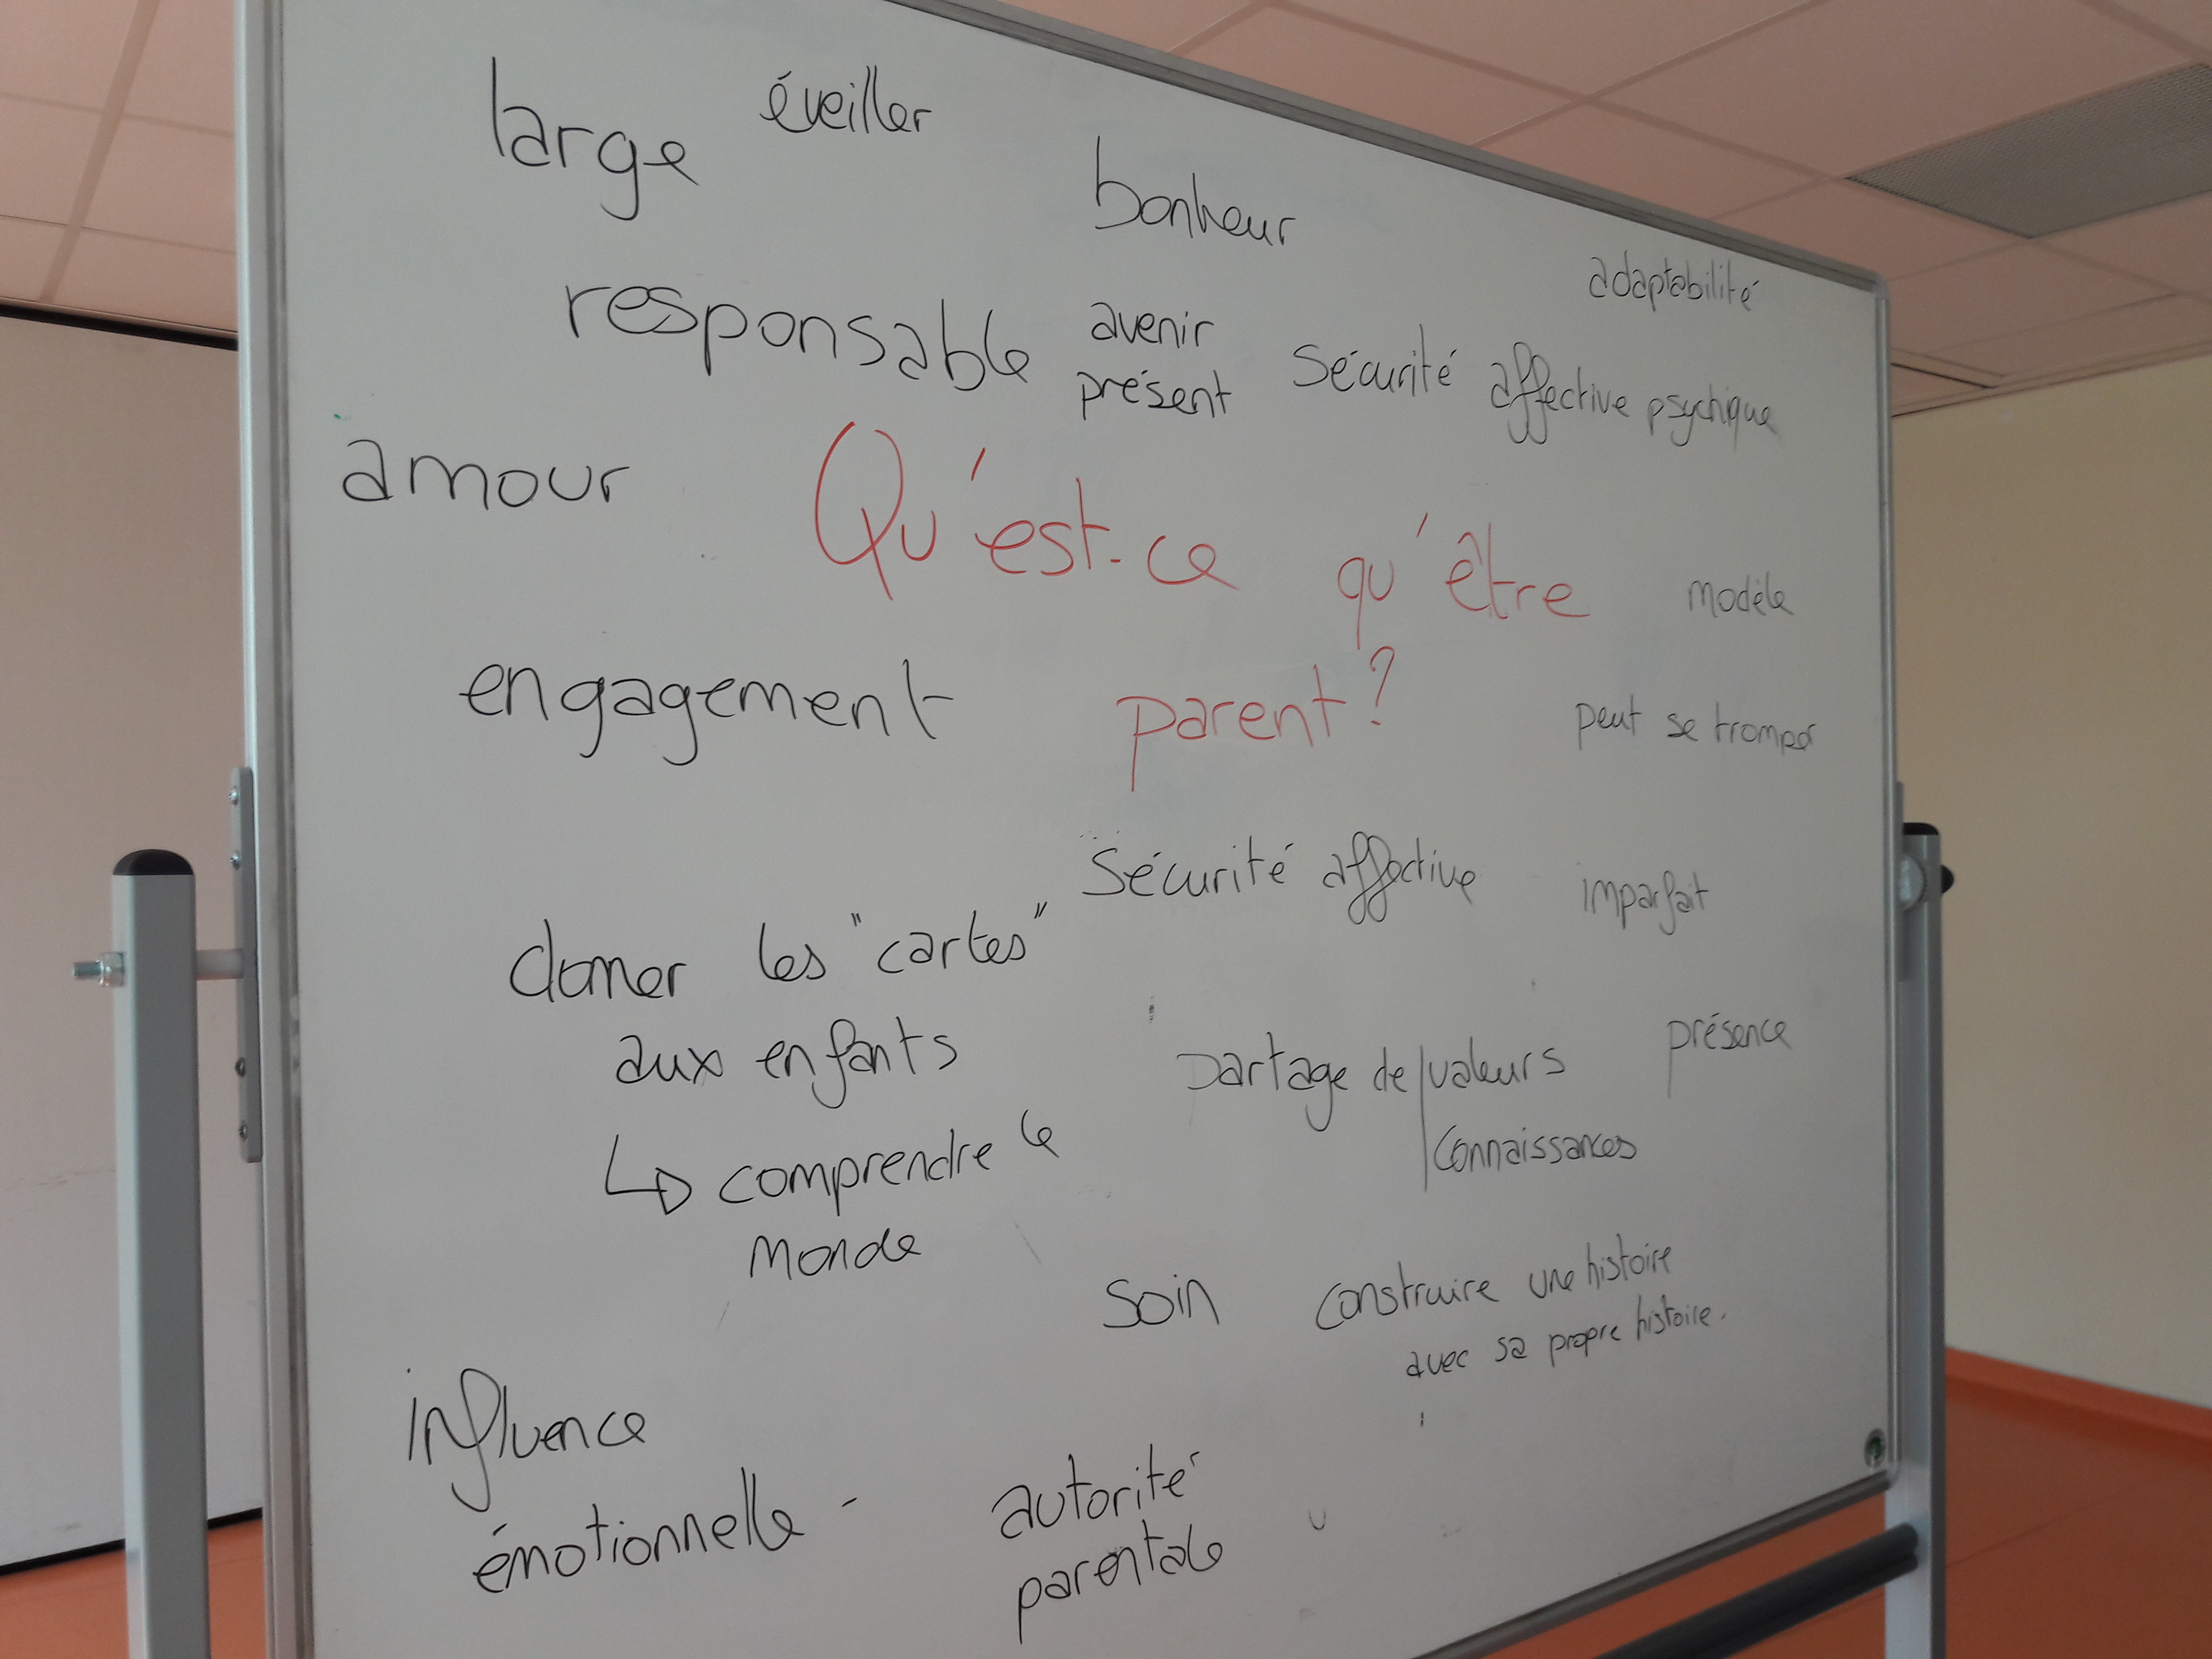 large
éveiller
bonheur
adaptabilité
responsable
avenir
présent
sécurité affective psychique
amour
Qu'est-ce qu'être
parent?
modèle
engagement
peut se tromper
Sécurité affective
imparfait
donner les "cartes"
aux enfants
↳ comprendre le
monde
partage de valeurs
connaissances
présence
soin
construire une histoire
avec sa propre histoire.
influence
émotionnelle -
autorité
parentale